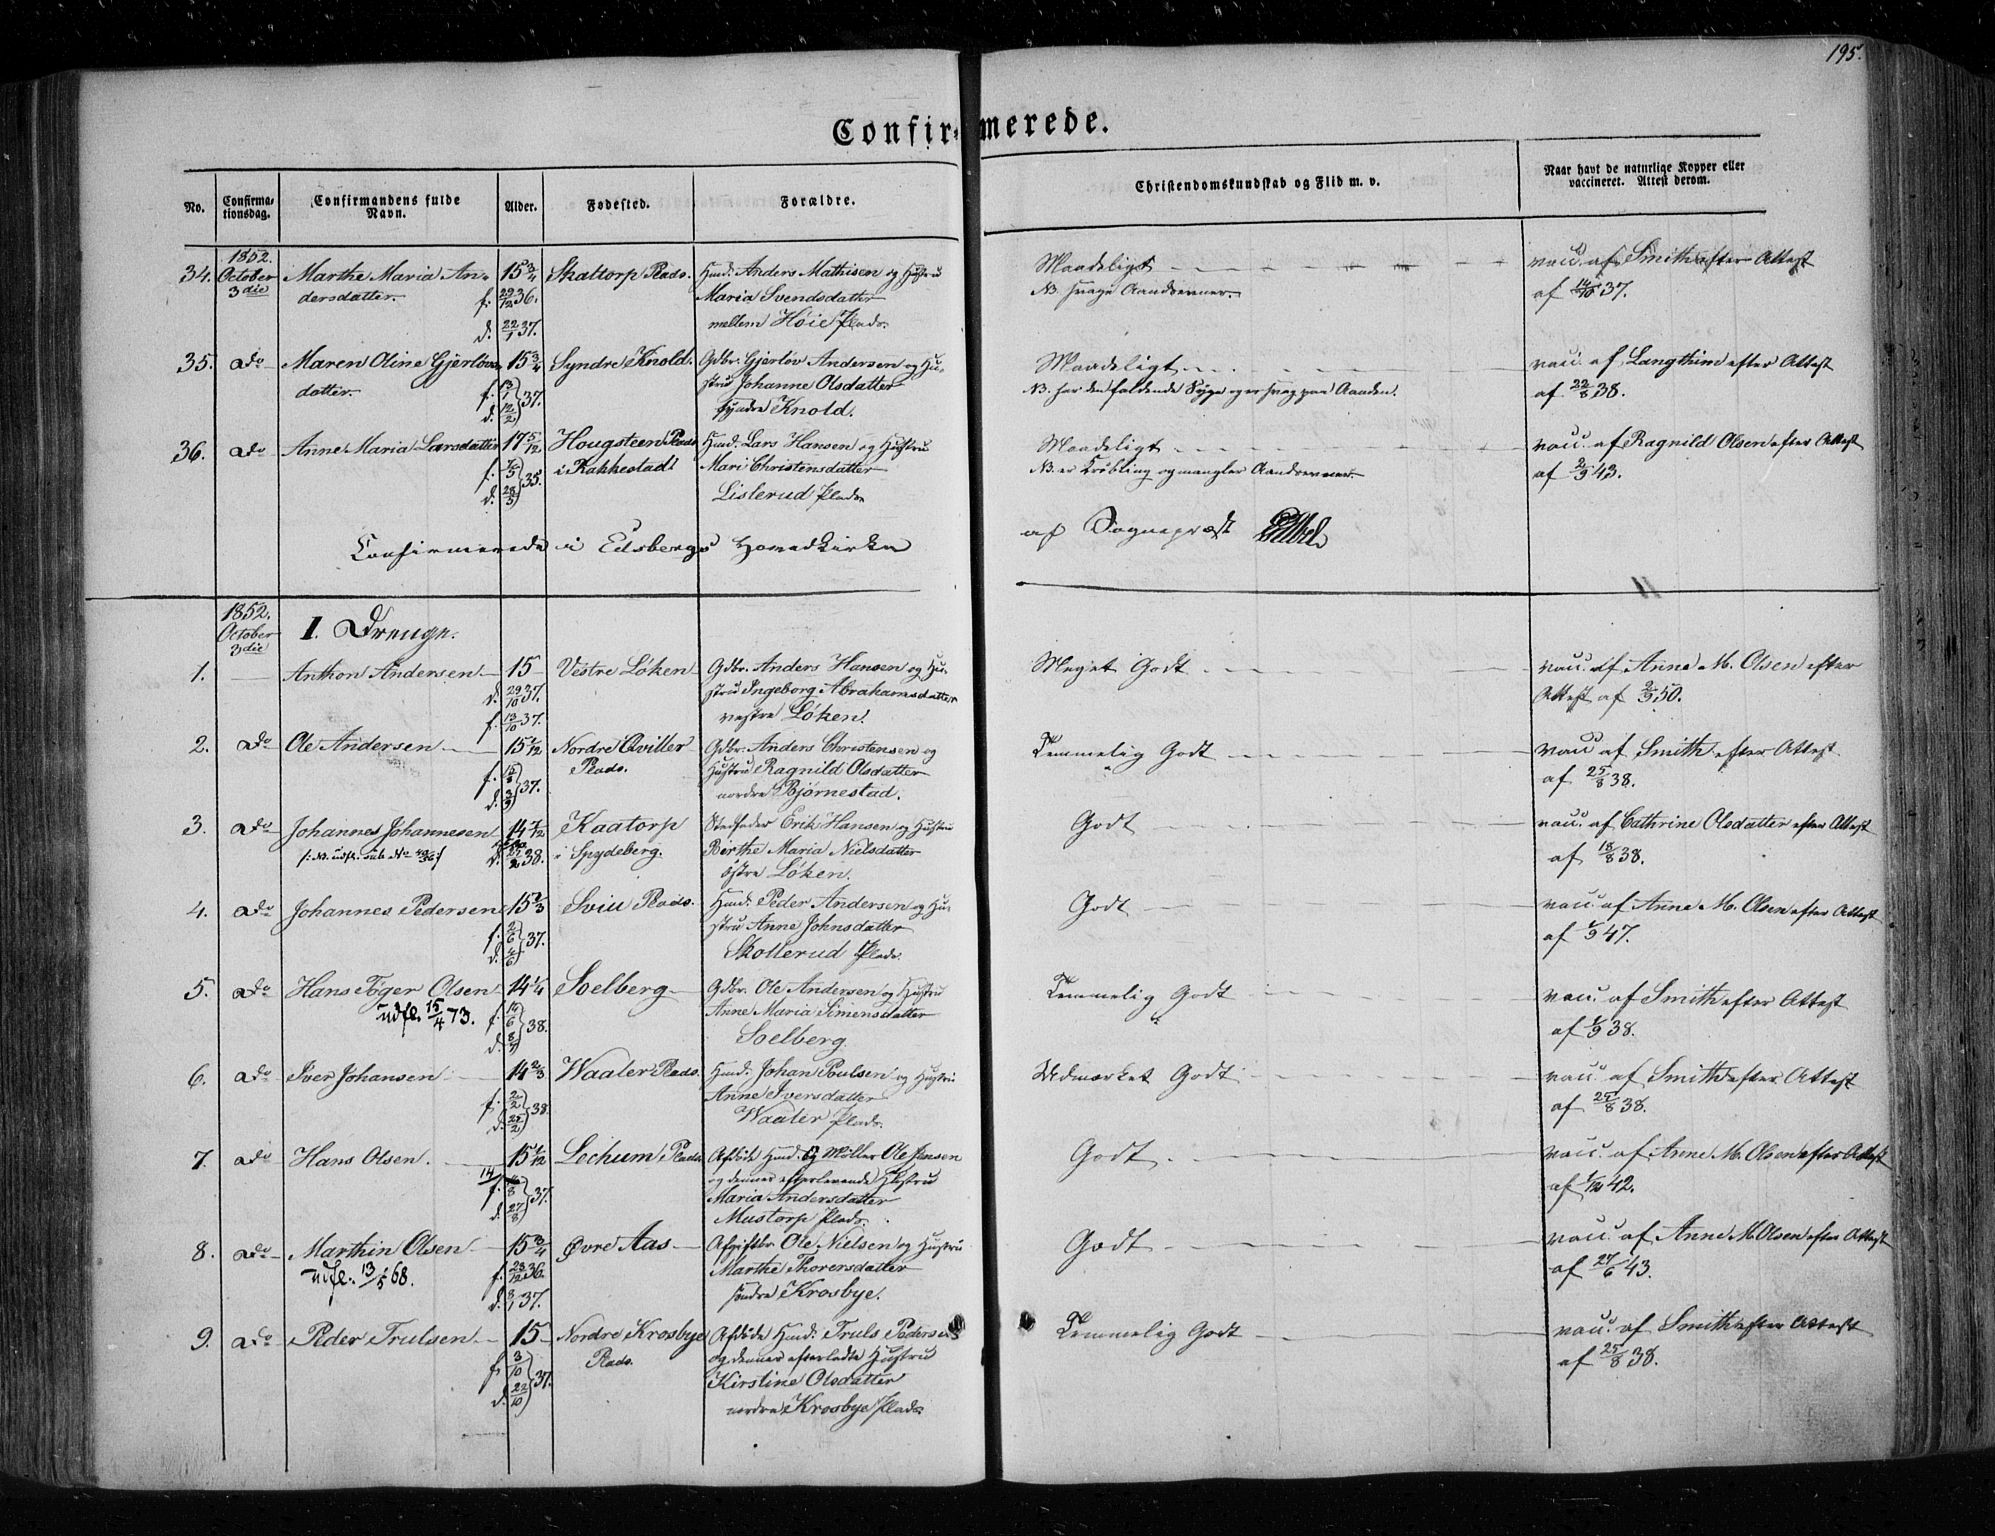 195.
Confirmerede.
No.
Confirma-
tionsdag.
Confirmandens fulde
Navn.
Alder.
Fødested.
Forældre.
Christendomskundskab og Flid m. v.
Naar havt de naturlige Kopper eller
vaccineret. Attest derom.
1852.
34. October Marthe Maria An- 15 3/4 Skattorp Plads. Hmd. Anders Mathisen og Hustru Maadeligt vacc. af Smith efter Attest
3die dersdatter. f. 29/12 36. Maria Svendsdatter NB. svage Aandsevner. af 14/10 37.
d. 22/1 37. mellem Höie Plads.
35. Do Maren Oline Gjerløvs- 15 3/4 Syndre Knold. Gdbr. Gjerløv Andersen og Hu- Maadeligt vacc. af Langthim efter Attest
datter. f. 13/1 37. stru Johanne Olsdatter NB. har den faldende Syge og er svag paa Aanden. af 22/8 38.
d. 12/2 syndre Knold.
36. Do Anne Maria Larsdatter 17 5/12 Hougsteen Plads Hmd. Lars Hansen og Hustru Maadeligt vacc. af Ragnild Olsen efter Attest
f. 35. i Rakkestad Mari Christensdatter NB. er Krøbling og mangler Aandsevner. af 2/9 43.
d. 28/5 Lislerud Plads
Confirmerede i Edsbergs Hovedkirke af Sognepræst
1852.
October 1. Drenge.
3die
1. Anthon Andersen 15 Vestre Løken Gdbr. Anders Hansen og Hu- Meget Godt vacc. af Anne M. Olsen efter
d. 29/10 37. stru Ingeborg Abrahamsdatter Attest af 2/9 50.
f. 13/10 37. vestre Løken.
2. Do Ole Andersen 15 1/12 Nordre Qviller Gdbr. Anders Christensen og Temmelig Godt vacc. af Smith efter Attest
f. 15/8 37. Plads. Hustru Ragnild Olsdatter af 25/8 38.
d. 3/9 nordre Bjørnestad.
3. Do Johannes Johannesen 14 7/12 Kaatorp Stedfader Erik Hansen og Hustru Godt vacc. af Cathrine Olsdatter efter Attest
d. 38. i Spydeberg. Birthe Maria Nielsdatter af 18/8 38.
østre Løken.
4. Do Johannes Pedersen 15 1/3 Sviu Plads. Hmd. Peder Andersen og Hu- Godt vacc. af Anne M. Olsen efter Attest
f. 2/6 37. stru Anne Johnsdatter af 1/9 47.
d. 4/6 Skollerud Plads
5. Do Hans Töger Olsen 14 1/4 Soelberg Gdbr. Ole Andersen og Hustru Temmelig Godt vacc. af Smith efter Attest
udfl. 15/4 73. f. 14/6 38. Anne Maria Simensdatter af 1/9 38.
d. 8/7 Soelberg.
6. Do Iver Johansen 14 2/3 Waaler Plads. Hmd. Johan Poulsen og Hustru Udmærket Godt vacc. af Smith efter Attest
f. 38. Anne Iversdatter af 25/8 38.
d. 25/2 Waaler Plads.
7. Do Hans Olsen. 15 1/12 Lechum Plads Afdöde Hmd. og Møller Ole Jansen Godt vacc. af Anne M. Olsen efter Attest
14/ f. 8 37. og dennes efterlevende Hustru af 1/12 42.
d. 27/8 Maria Andersdatter
Mustorp Plads.
8. Do Marthin Olsen 15 3/4 Øvre Aas Afgiftbr. Ole Nielsen og Hustru Godt vacc. af Anne M. Olsen efter Attest
udfl. 13/5 68. f. 23/12 36. Marthe Thorersdatter af 27/6 43.
d. 8/1 37. søndre Krosbye.
9. Do Peder Trulsen 15 Nordre Krosbye Afdöde Hmd. Truls Pedersen Temmelig Godt vacc. af Smith efter Attest
f. 3/10 37. Plads. og dennes efterladte Hustru af 25/8 38.
d. 22/10 Kirstine Olsdatter
nordre Krosbye Plads